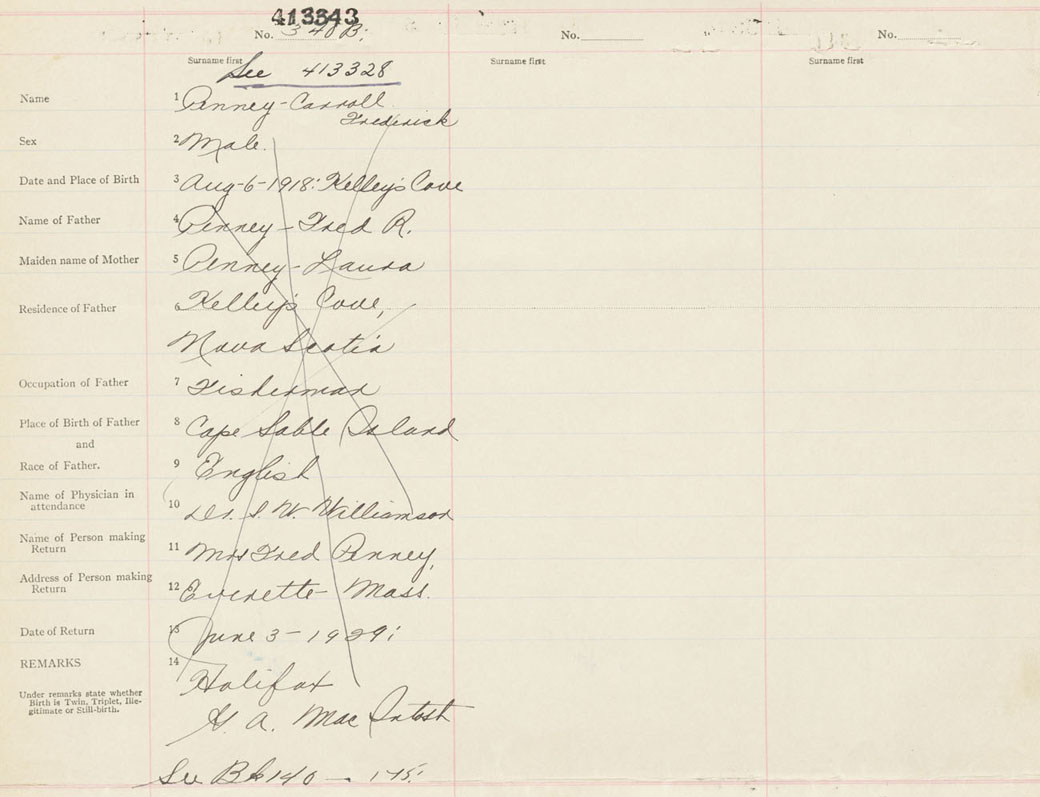 413343
No. 340B.
No.
No.
Surname first
Surname first
Surname first
See 413328
Name 1 Penney-Carroll
Frederick
Sex 2 Male.
Date and Place of Birth 3 Aug-6-1918: Kelley's Cove
Name of Father 4 Penney-Fred R.
Maiden name of Mother 5 Penney-Laura
Residence of Father 6 Kelley's Cove,
Nova Scotia
Occupation of Father 7 Fisherman
Place of Birth of Father 8 Cape Sable Island
and
Race of Father. 9 English
Name of Physician in
attendance 10 Dr. S. W. Williamson
Name of Person making
Return 11 Mrs Fred Penney,
Address of Person making
Return 12 Everette-Mass.
Date of Return 13 June 3-1929:
REMARKS 14 Halifax
Under remarks state whether
Birth is Twin, Triplet, Ille-
gitimate or Still-birth.
G. A. MacIntosh
See Bk 140 - 175: